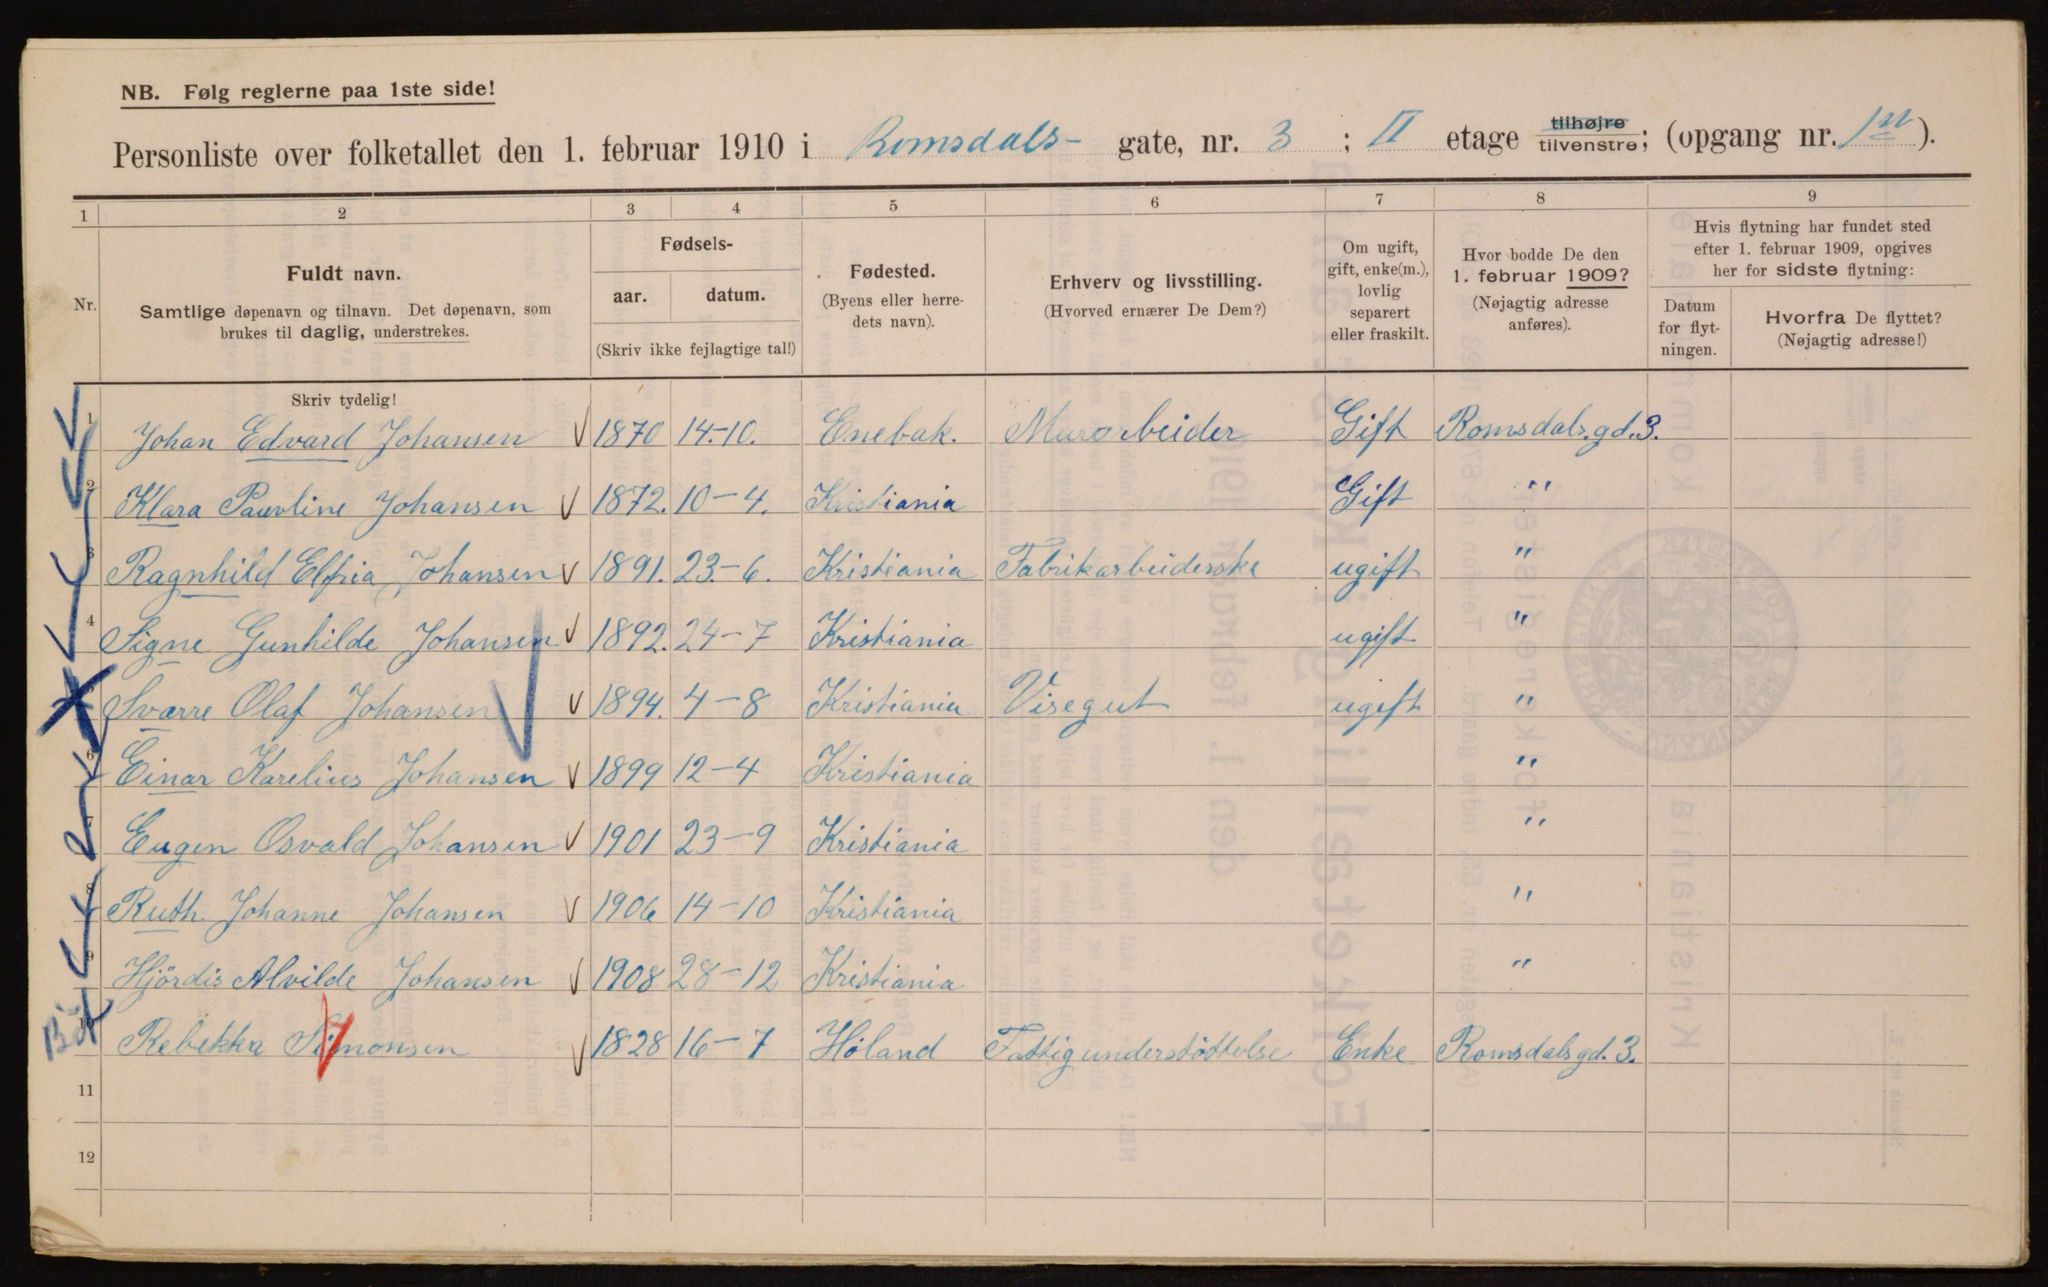 NB. Følg reglerne paa 1ste side!
Personliste over folketallet den 1. februar 1910 i Romsdals- gate, nr. 3 ; II etage tilhøjre tilvenstre; (opgang nr. 1ste ).
1 2 3 4 5 6 7 8 9
Nr.
Fuldt navn.
Samtlige døpenavn og tilnavn. Det døpenavn, som
brukes til daglig, understrekes.
Fødsels-
aar. datum.
(Skriv ikke fejlagtige tal!)
Fødested.
(Byens eller herre-
dets navn).
Erhverv og livsstilling.
(Hvorved ernærer De Dem?)
Om ugift,
gift, enke(m.),
lovlig
separert
eller fraskilt.
Hvor bodde De den
1. februar 1909?
(Nøjagtig adresse
anføres).
Hvis flytning har fundet sted
efter 1. februar 1909, opgives
her for sidste flytning:
Datum
for flyt-
ningen.
Hvorfra De flyttet?
(Nøjagtig adresse!)
Skriv tydelig!
1 Johan Edvard Johansen 1870 14.-10. Enebak. Murarbeider Gift Romsdals.gd.3.
2 Klara Pauvline Johansen 1872. 10-4. Kristiania Gift "
3 Ragnhild Elfria Johansen 1891. 23.-6. Kristiania Fabrikarbeiderske ugift "
4 Signe Gunhilde Johansen 1892. 24-7 Kristiania ugift "
5 Sværre Olaf Johansen 1894. 4-8 Kristiania Visegut ugift "
6 Einar Karelius Johansen 1899 12-4 Kristiania "
7 Eugen Osvald Johansen 1901 23-9 Kristiania "
8 Ruth. Johanne Johansen 1906 14-10 Kristiania "
9 Hjördis Alvilde Johansen 1908 28-12 Kristiania "
10 Rebekka Simonsen 1828 16-7 Höland Fattigunderstöttelse Enke Romsdalsgd.3.
11
12